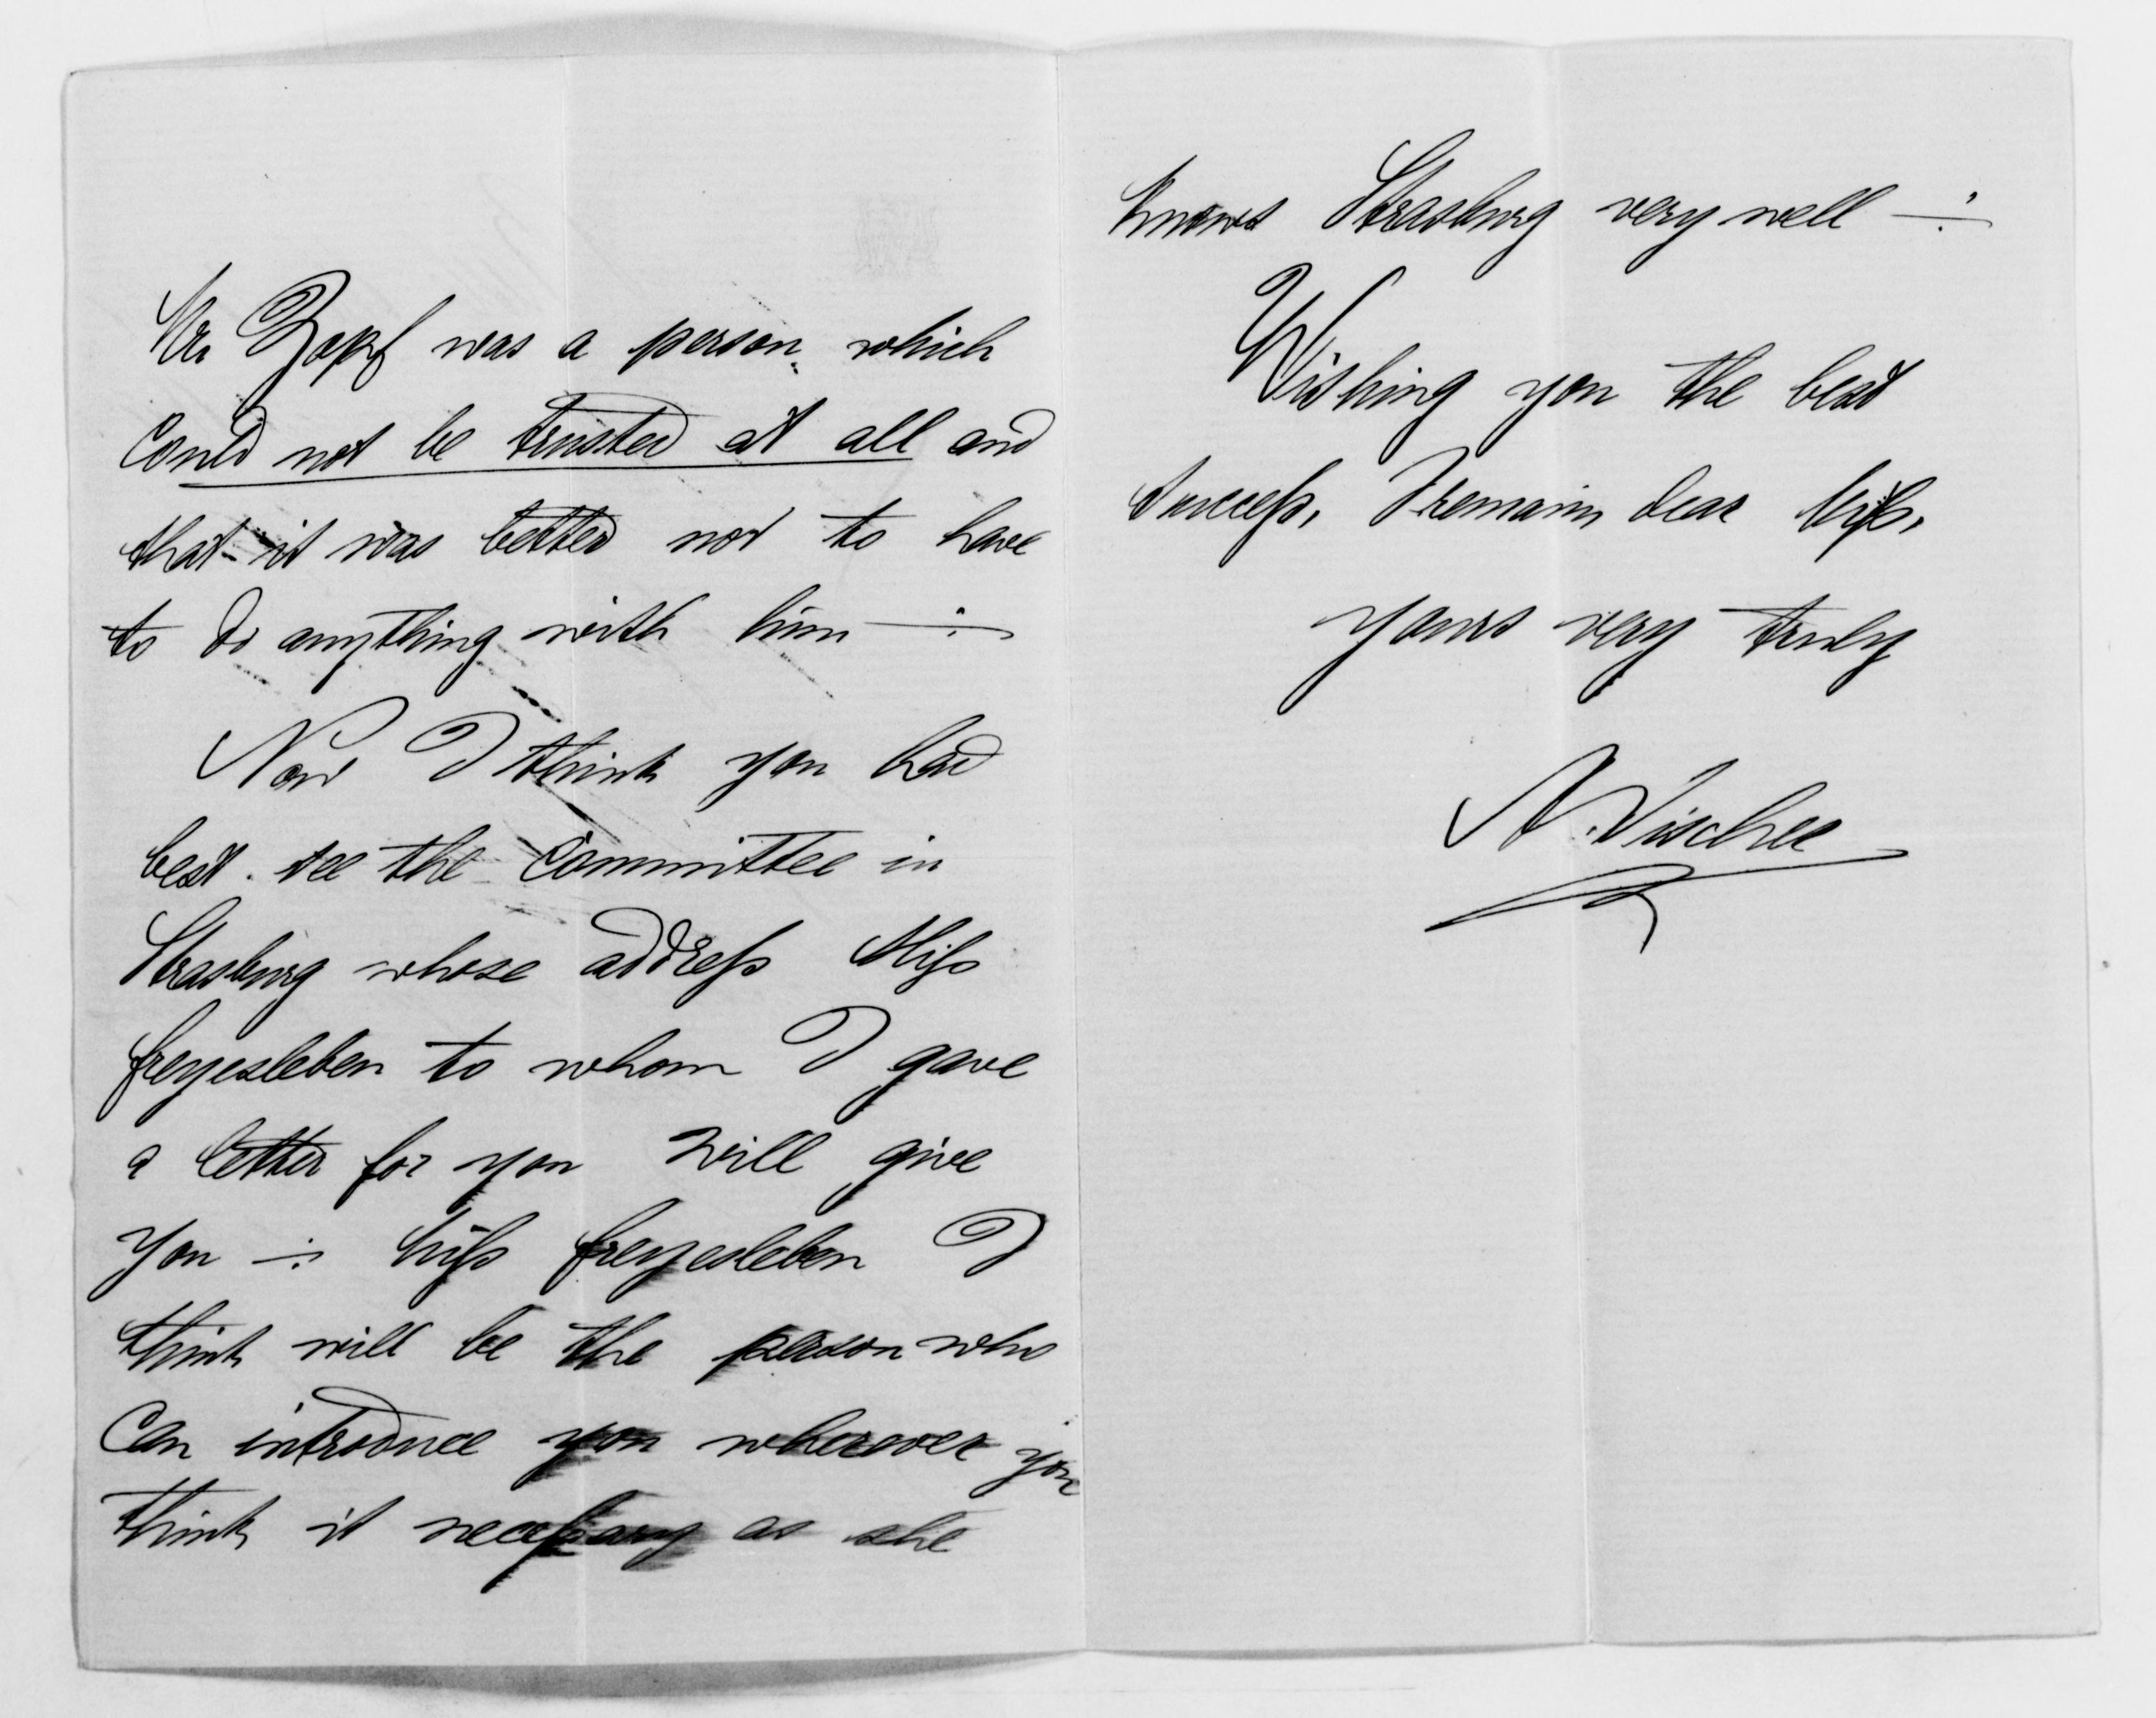 Mr Zopf was a person which
could not be trusted at all and
that it was better not to have
to do anything with him ÷
Now I think you had
best see the committee in
Strasburg whose address Miss
freyesleben to whom I gave
a letter for you will give
you ÷ Miss freyesleben I
think will be the person who
Can introduce you wherever you
think it necessary as she
knows Strasburg very well ÷
Wishing you the best
success, I remain dear Miss,
yours very truly
N. Vischer